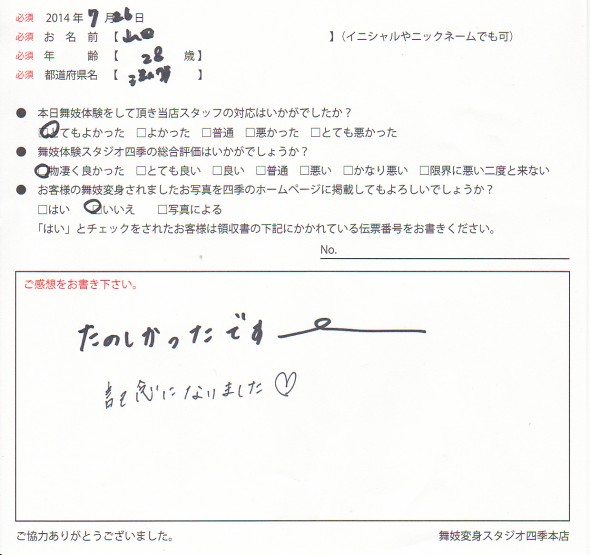 必須 2014年 7月 26日
必須 お名前【 山田 】(イニシャルやニックネームでも可)
必須 年齢【 28 歳】
必須 都道府県名【 】
● 本日舞妓体験をして頂き当店スタッフの対応はいかがでしたか?
□とてもよかった □よかった □普通 □悪かった □とても悪かった
● 舞妓体験スタジオ四季の総合評価はいかがでしょうか?
□物凄く良かった □とても良い □良い □普通 □悪い □かなり悪い □限界に悪い二度と来ない
● お客様の舞妓変身されましたお写真を四季のホームページに掲載してもよろしいでしょうか?
□はい □いいえ □写真による
「はい」とチェックをされたお客様は領収書の下記にかかれている伝票番号をお書きください。
No.
ご感想をお書き下さい。
たのしかったです
記念になりました♡
ご協力ありがとうございました。 舞妓変身スタジオ四季本店